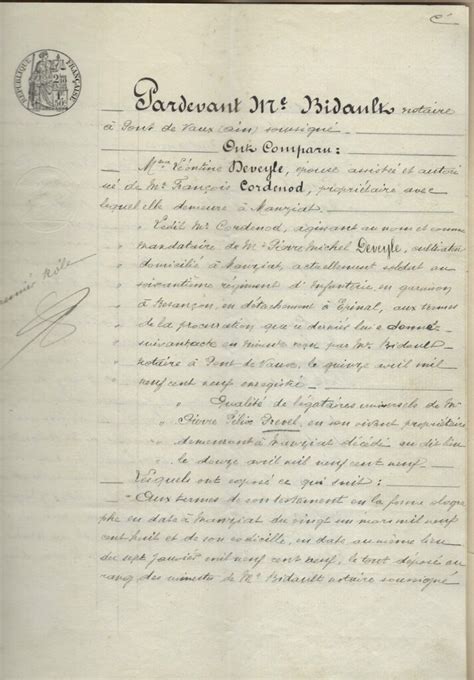 RÉPUBLIQUE FRANÇAISE
Pardevant Me Bidault notaire
à Pont de Vaux (ain) soussigné
Ont Comparu:
Mme Léontine Deveyle, épouse assistée et autori
sée de Mr François Cordenod, propriétaire avec
lequel elle demeure à Manziat
Ledit Mr Cordenod, agissant au nom et comme
mandataire de Mr Pierre Michel Deveyle, cultivateur
domicilié à Manziat, actuellement soldat au
soixantième régiment d'Infanterie, en garnison
à Besançon, en détachement à Epinal, aux termes
de la procuration que ce dernier lui a donnée
suivant acte en minute reçu par Me Bidault
notaire à Pont de Vaux, le quinze avril mil
neuf cent neuf enregistré
Qualité de légataires universels de Mr
Pierre Félix en son vivant propriétaire
demeurant à Manziat décédé au dit lieu
le douze avril mil neuf cent neuf.
Lesquels ont exposé ce qui suit:
Aux termes de son testament en la forme ologra
phe en date à Manziat du vingt un mars mil neuf
cent huit et de son codicille, en date au même lieu
du sept Janvier mil neuf cent neuf, le tout déposé au
rang des minutes de Me Bidault notaire soussigné
rôle